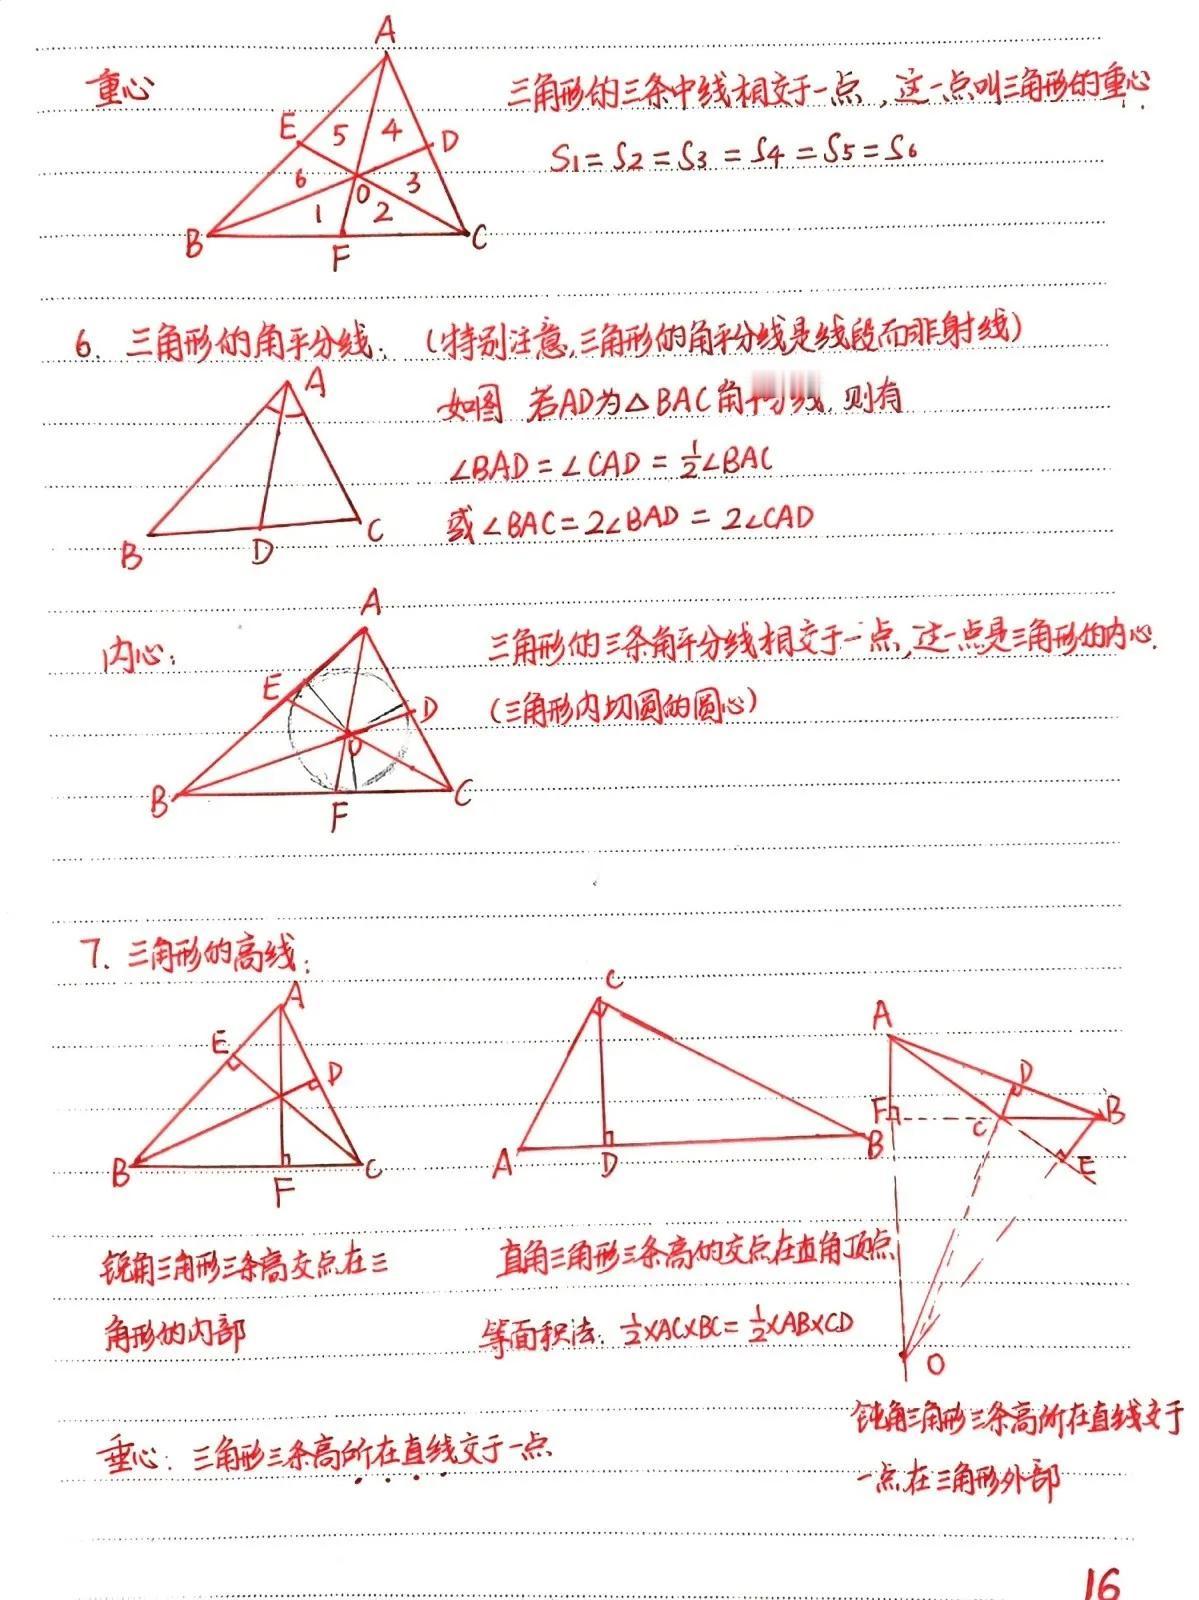 重心
A
E 5 4 D
6 O 3
1 2
B F C
三角形的三条中线相交于一点，这一点叫三角形的重心.
S1=S2=S3=S4=S5=S6
6. 三角形的角平分线：（特别注意,三角形的角平分线是线段而非射线）
A
B D C
如图 若AD为△BAC角平分线,则有
∠BAD=∠CAD=½∠BAC
或∠BAC=2∠BAD=2∠CAD
内心：
A
E D
O
B F C
三角形的三条角平分线相交于一点,这一点是三角形的内心.
(三角形内切圆的圆心)
7. 三角形的高线：
A
E D
B F C
C
A D B
A
D
F C B
E
O
锐角三角形三条高交点在三
角形的内部
直角三角形三条高的交点在直角顶点
等面积法：½×AC×BC=½×AB×CD
钝角三角形三条高所在直线交于
一点在三角形外部
垂心：三角形三条高所在直线交于一点
16